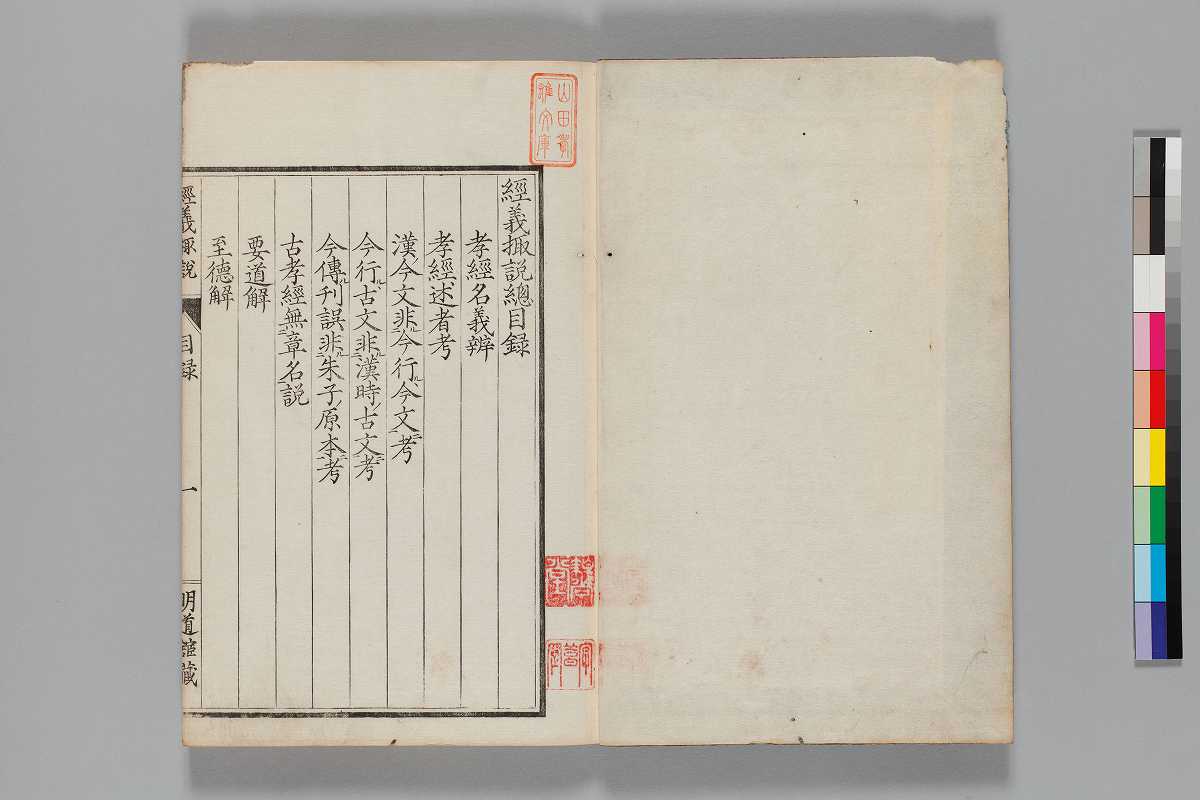 經義掫説總目録
孝經名義辨
孝經述者考
漢今文非今行今文考
今行古文非漢時古文考
今傳刊誤非朱子原本考
古孝經無章名説
要道解
至德解
經義掫説
目録
一
明道館藏